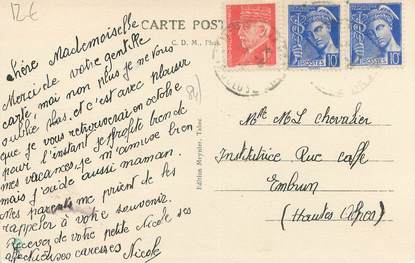 12€
CARTE POST
C. D. M., Pho
Chère Mademoiselle
Merci de votre gentille
carte, moi non plus je ne vous
oublie pas, et c'est avec plaisir
que je vous retrouverai en octobre
pour l'instant je profite bien de
mes vacances, je m'amuse bien
mais j'aide aussi maman.
Mes parents me prient de les
rappeler à votre souvenir.
Recevez de votre petite Nicole ses
affectueuses caresses
Nicole
Edition Meynier, Tabac
POSTES
10
POSTES
10
Mlle M L Chevalier
Institutrice Rue
Embrun
(Hautes Alpes)